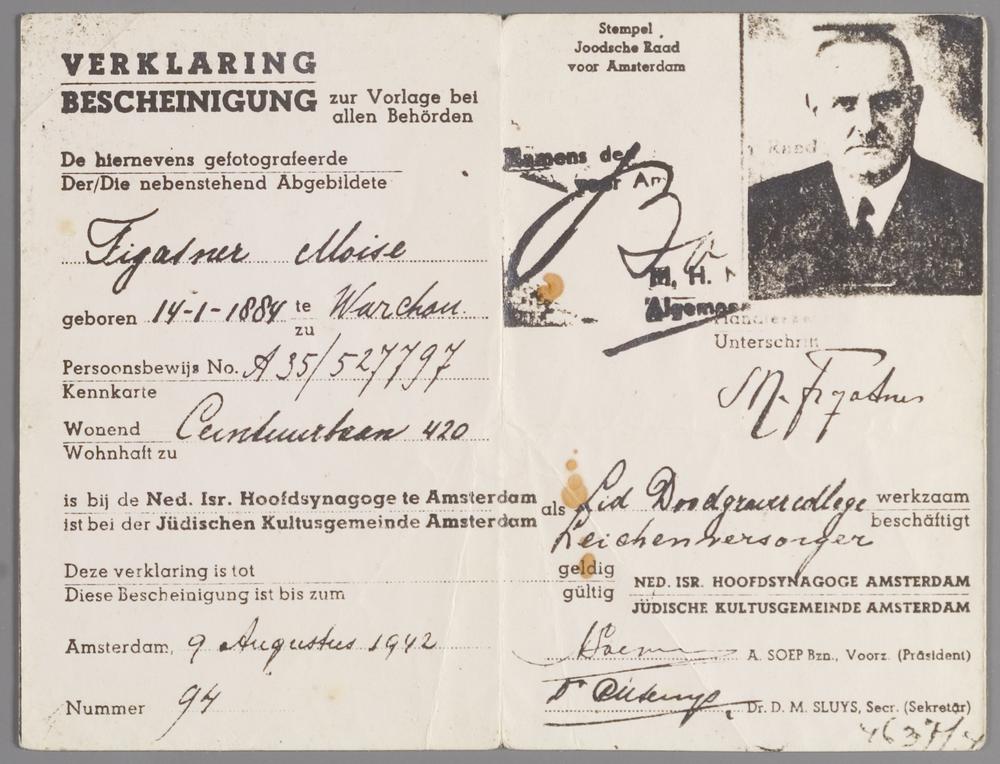 VERKLARING
BESCHEINIGUNG zur Vorlage bei
allen Behörden
De hiernevens gefotografeerde
Der/Die nebenstehend Abgebildete
Figatner Moise
geboren 14-1-1884 te Warchau.
zu
Persoonsbewijs No. A35/527797
Kennkarte
Wonend Ceintuurbaan 420
Wohnhaft zu
is bij de Ned. Isr. Hoofdsynagoge te Amsterdam
ist bei der Jüdischen Kultusgemeinde Amsterdam
Deze verklaring is tot
Diese Bescheinigung ist bis zum
Amsterdam, 9 Augustus 1942
Nummer 94
Stempel
Joodsche Raad
voor Amsterdam
Namens de
voor Am
M. H.
Algemee
Raad
Unterschrift
M. Figatner
als Lid Doodgraverscollege werkzaam
beschäftigt
Leichenversorger
geldig
gültig
NED. ISR. HOOFDSYNAGOGE AMSTERDAM
JÜDISCHE KULTUSGEMEINDE AMSTERDAM
A. SOEP Bzn., Voorz. (Präsident)
Dr. D. M. SLUYS, Secr. (Sekretär)